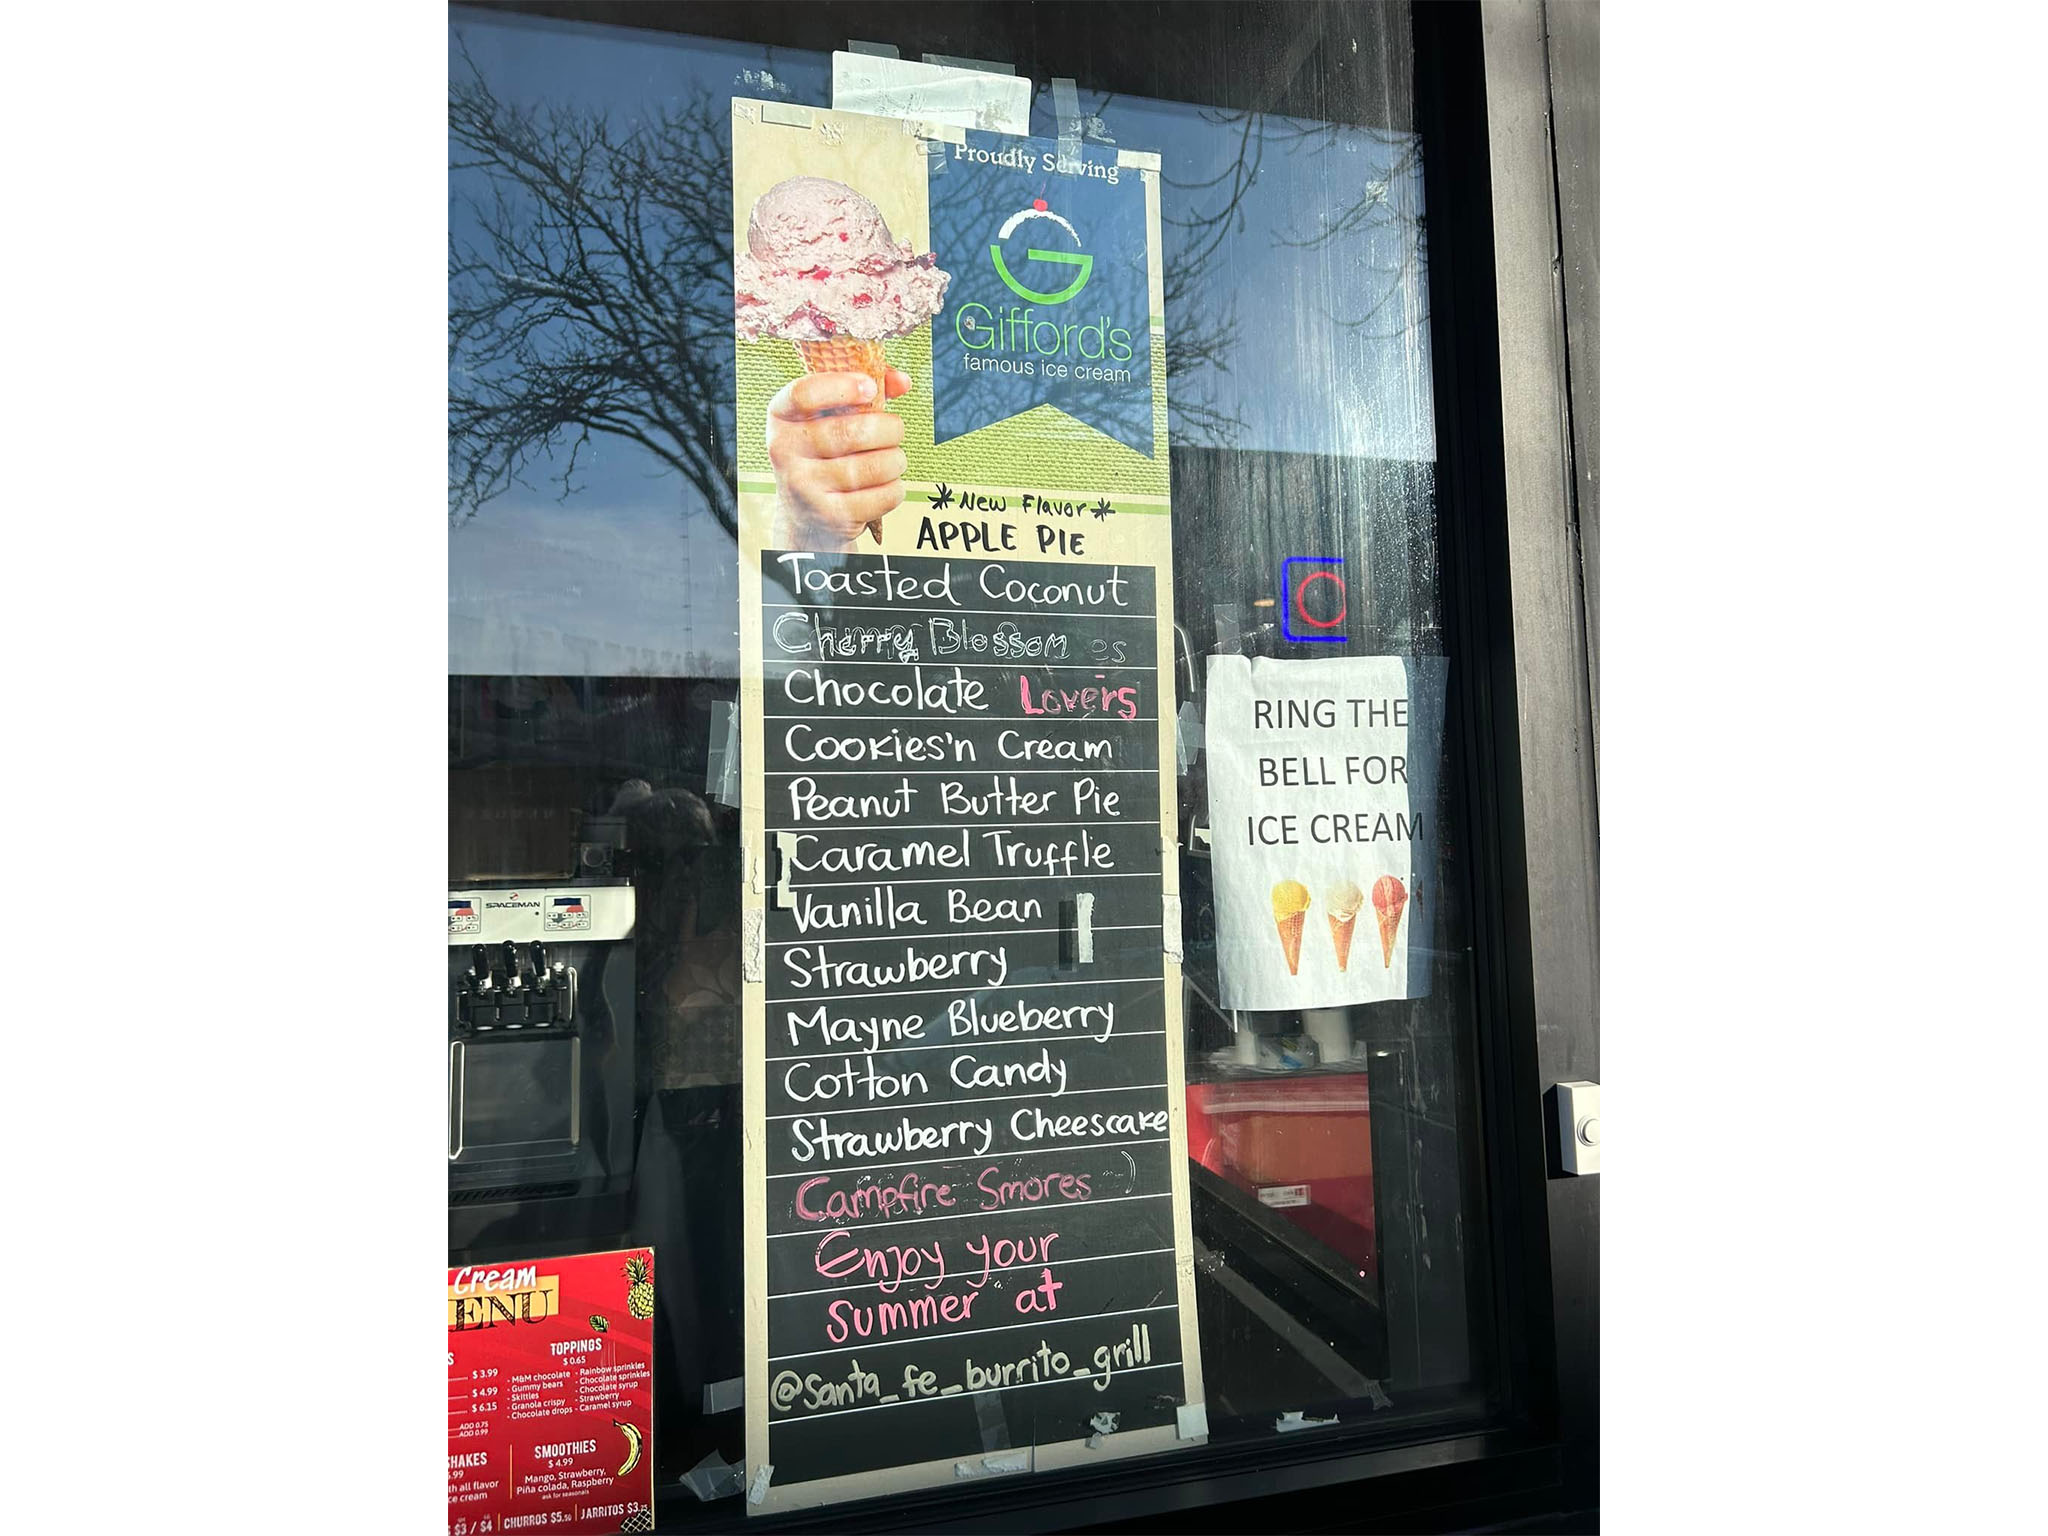 Proudly Serving
G
Gifford's
famous ice cream
*New Flavor*
APPLE PIE
Toasted Coconut
Cherry Blossom
Chocolate Lovers
Cookies'n Cream
Peanut Butter Pie
Caramel Truffle
Vanilla Bean
Strawberry
Mayne Blueberry
Cotton Candy
Strawberry Cheescake
Campfire Smores
Enjoy your
summer at
@Santa_fe_burrito_grill
RING THE
BELL FOR
ICE CREAM
SPACEMAN
Cream
ENU
S
$3.99
$4.99
$6.15
ADD 0.75
ADD 0.99
TOPPINGS
$0.65
- M&M chocolate
- Gummy bears
- Skittles
- Granola crispy
- Chocolate drops
- Rainbow sprinkles
- Chocolate sprinkles
- Chocolate syrup
- Strawberry
- Caramel syrup
HAKES
.99
th all flavor
ce cream
SMOOTHIES
$4.99
Mango, Strawberry,
Piña colada, Raspberry
ask for seasonals
$3 / $4 | CHURROS $5.50 | JARRITOS $3.75